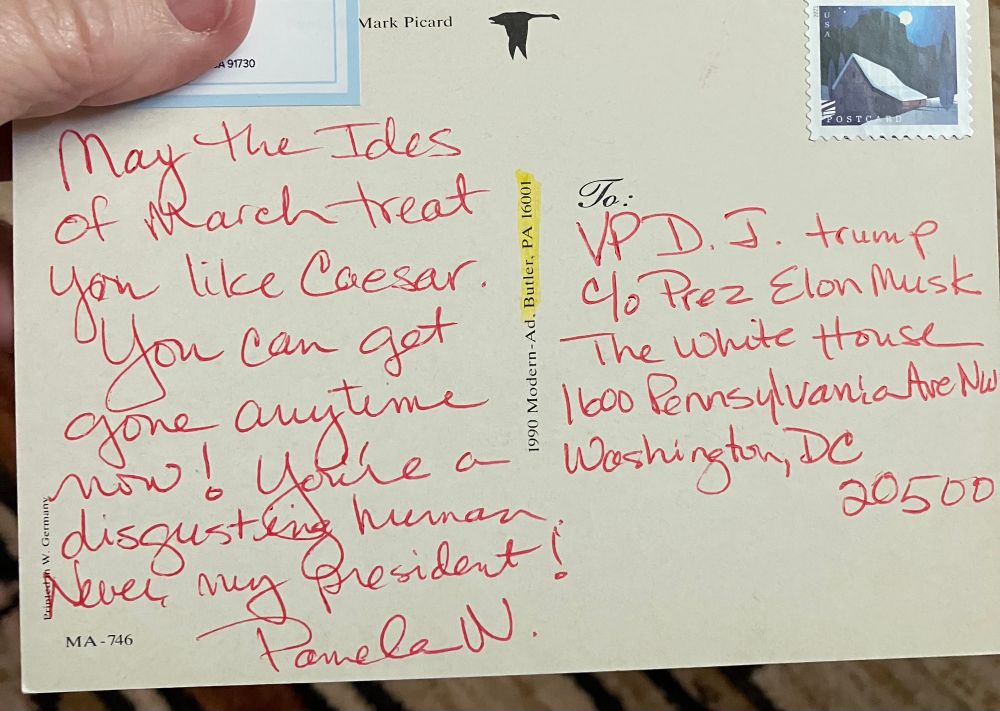 Mark Picard
CA 91730
USA
POSTCARD
May the Ides
of March treat
you like Caesar.
You can get
gone anytime
now! You're a
disgusting human.
Never my president!
Pamela W.
Printed in W. Germany
MA-746
1990 Modern-Ad, Butler, PA 16001
To:
VP D. J. trump
c/o Prez Elon Musk
The White House
1600 Pennsylvania Ave NW
Washington, DC
20500